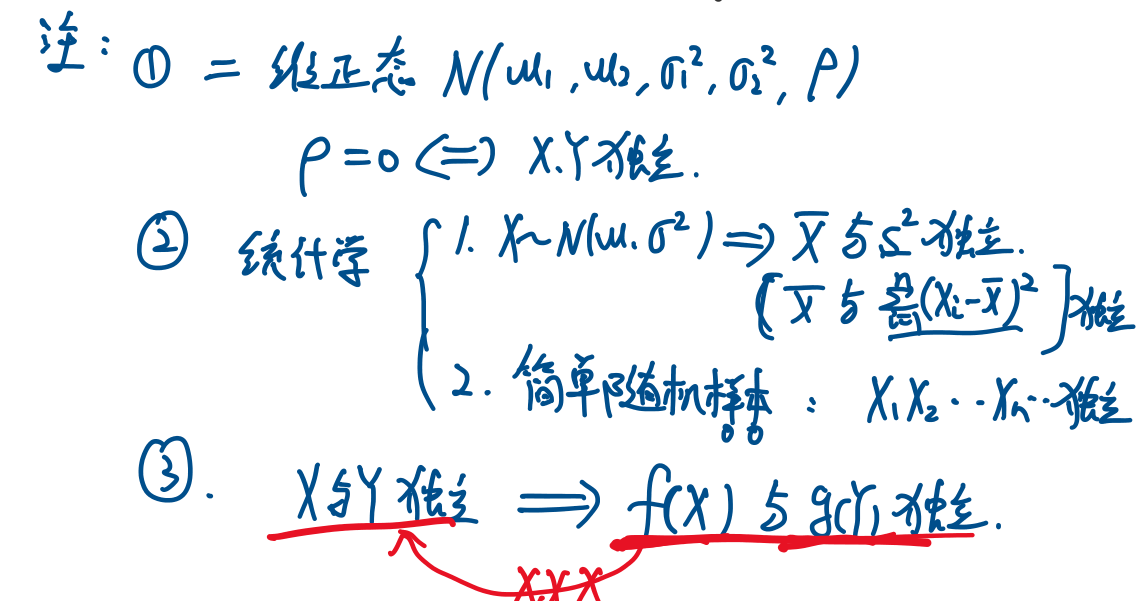 注：① 二维正态 N(μ₁,μ₂,σ₁²,σ₂²,ρ)
ρ=0 <=> X.Y独立.
② 统计学 { 1. X~N(μ.σ²) => X̄与S²独立.
[X̄与∑ⁿᵢ₌₁(Xᵢ-X̄)²]独立
2. 简单随机样本：X₁X₂··Xₙ··独立
③. X与Y独立 => f(X)与g(Y)独立.
X.X.X